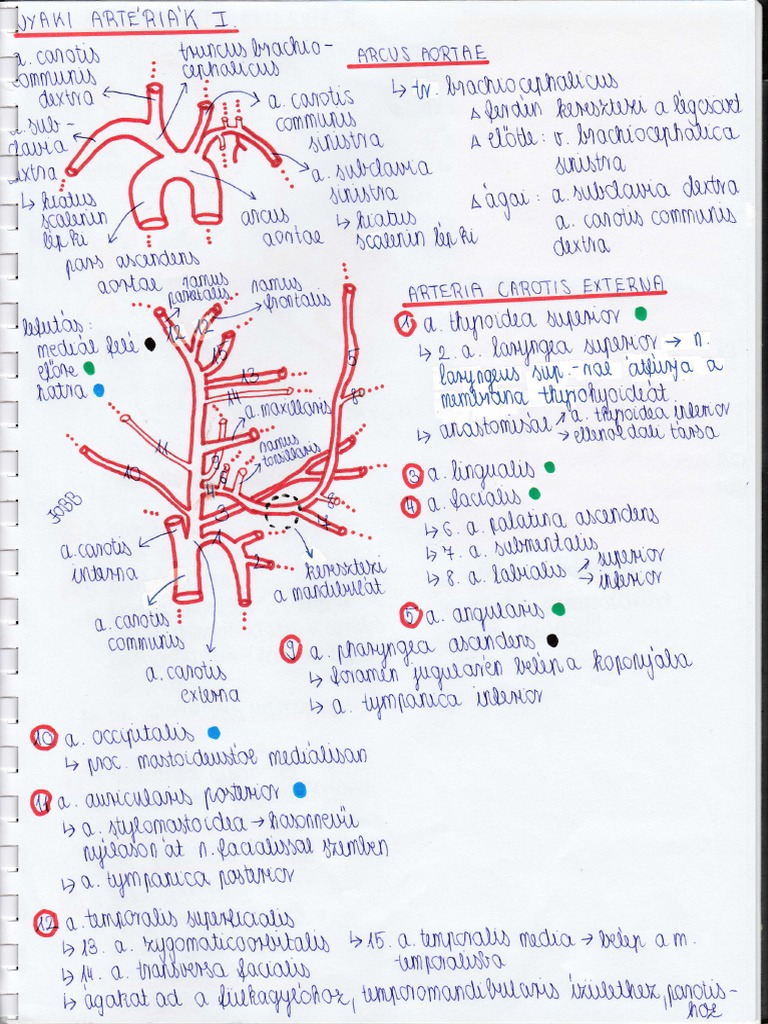 NYAKI ARTÉRIÁK I.
a. carotis
communis
dextra
truncus brachio-
cephalicus
a. carotis
communis
sinistra
a. sub-
clavia
dextra
↳ hiatus
scalenin
lép ki
a. subclavia
sinistra
↳ hiatus
scalenin lép ki
arcus
aortae
pars ascendens
aortae
ARCUS AORTAE
↳ tr. brachiocephalicus
△ ferdén keresztezi a légcsövt
△ előtte: v. brachiocephalica
sinistra
△ ágai: a. subclavia dextra
a. carotis communis
dextra
lefutás:
mediál felé
előre
hátra
ramus
parietalis
ramus
frontalis
12
12
15
13
14
a. maxillaris
ramus
tonsillaris
11
10
5
8
9
6
4
3
8
7
1
2
JOBB
a. carotis
interna
a. carotis
communis
a. carotis
externa
keresztezi
a mandibulát
ARTERIA CAROTIS EXTERNA
1 a. thyroidea superior
↳ 2. a. laryngea superior → n.
laryngeus sup.-ral átfúrja a
membrana thyrohyoideát
↳ anastomisál → a. thyroidea inferior
→ ellenoldali társa
3 a. lingualis
4 a. facialis
↳ 6. a. palatina ascendens
↳ 7. a. submentalis
↳ 8. a. labialis → superior
→ inferior
5 a. angularis
9 a. pharyngea ascendens
↳ foramen jugularén belép a koponyába
↳ a. tympanica inferior
10 a. occipitalis
↳ proc. mastoideustól mediálisan
11 a. auricularis posterior
↳ a. stylomastoidea → hasonnevű
nyíláson át n. facialissal szemben
↳ a. tympanica posterior
12 a. temporalis superficialis
↳ 13. a. zygomaticoorbitalis ↳ 15. a. temporalis media → belép a m.
temporalisba
↳ 14. a. transversa facialis
↳ ágakat ad a fülkagylóhoz, temporomandibularis ízülethez, parotis-
hoz